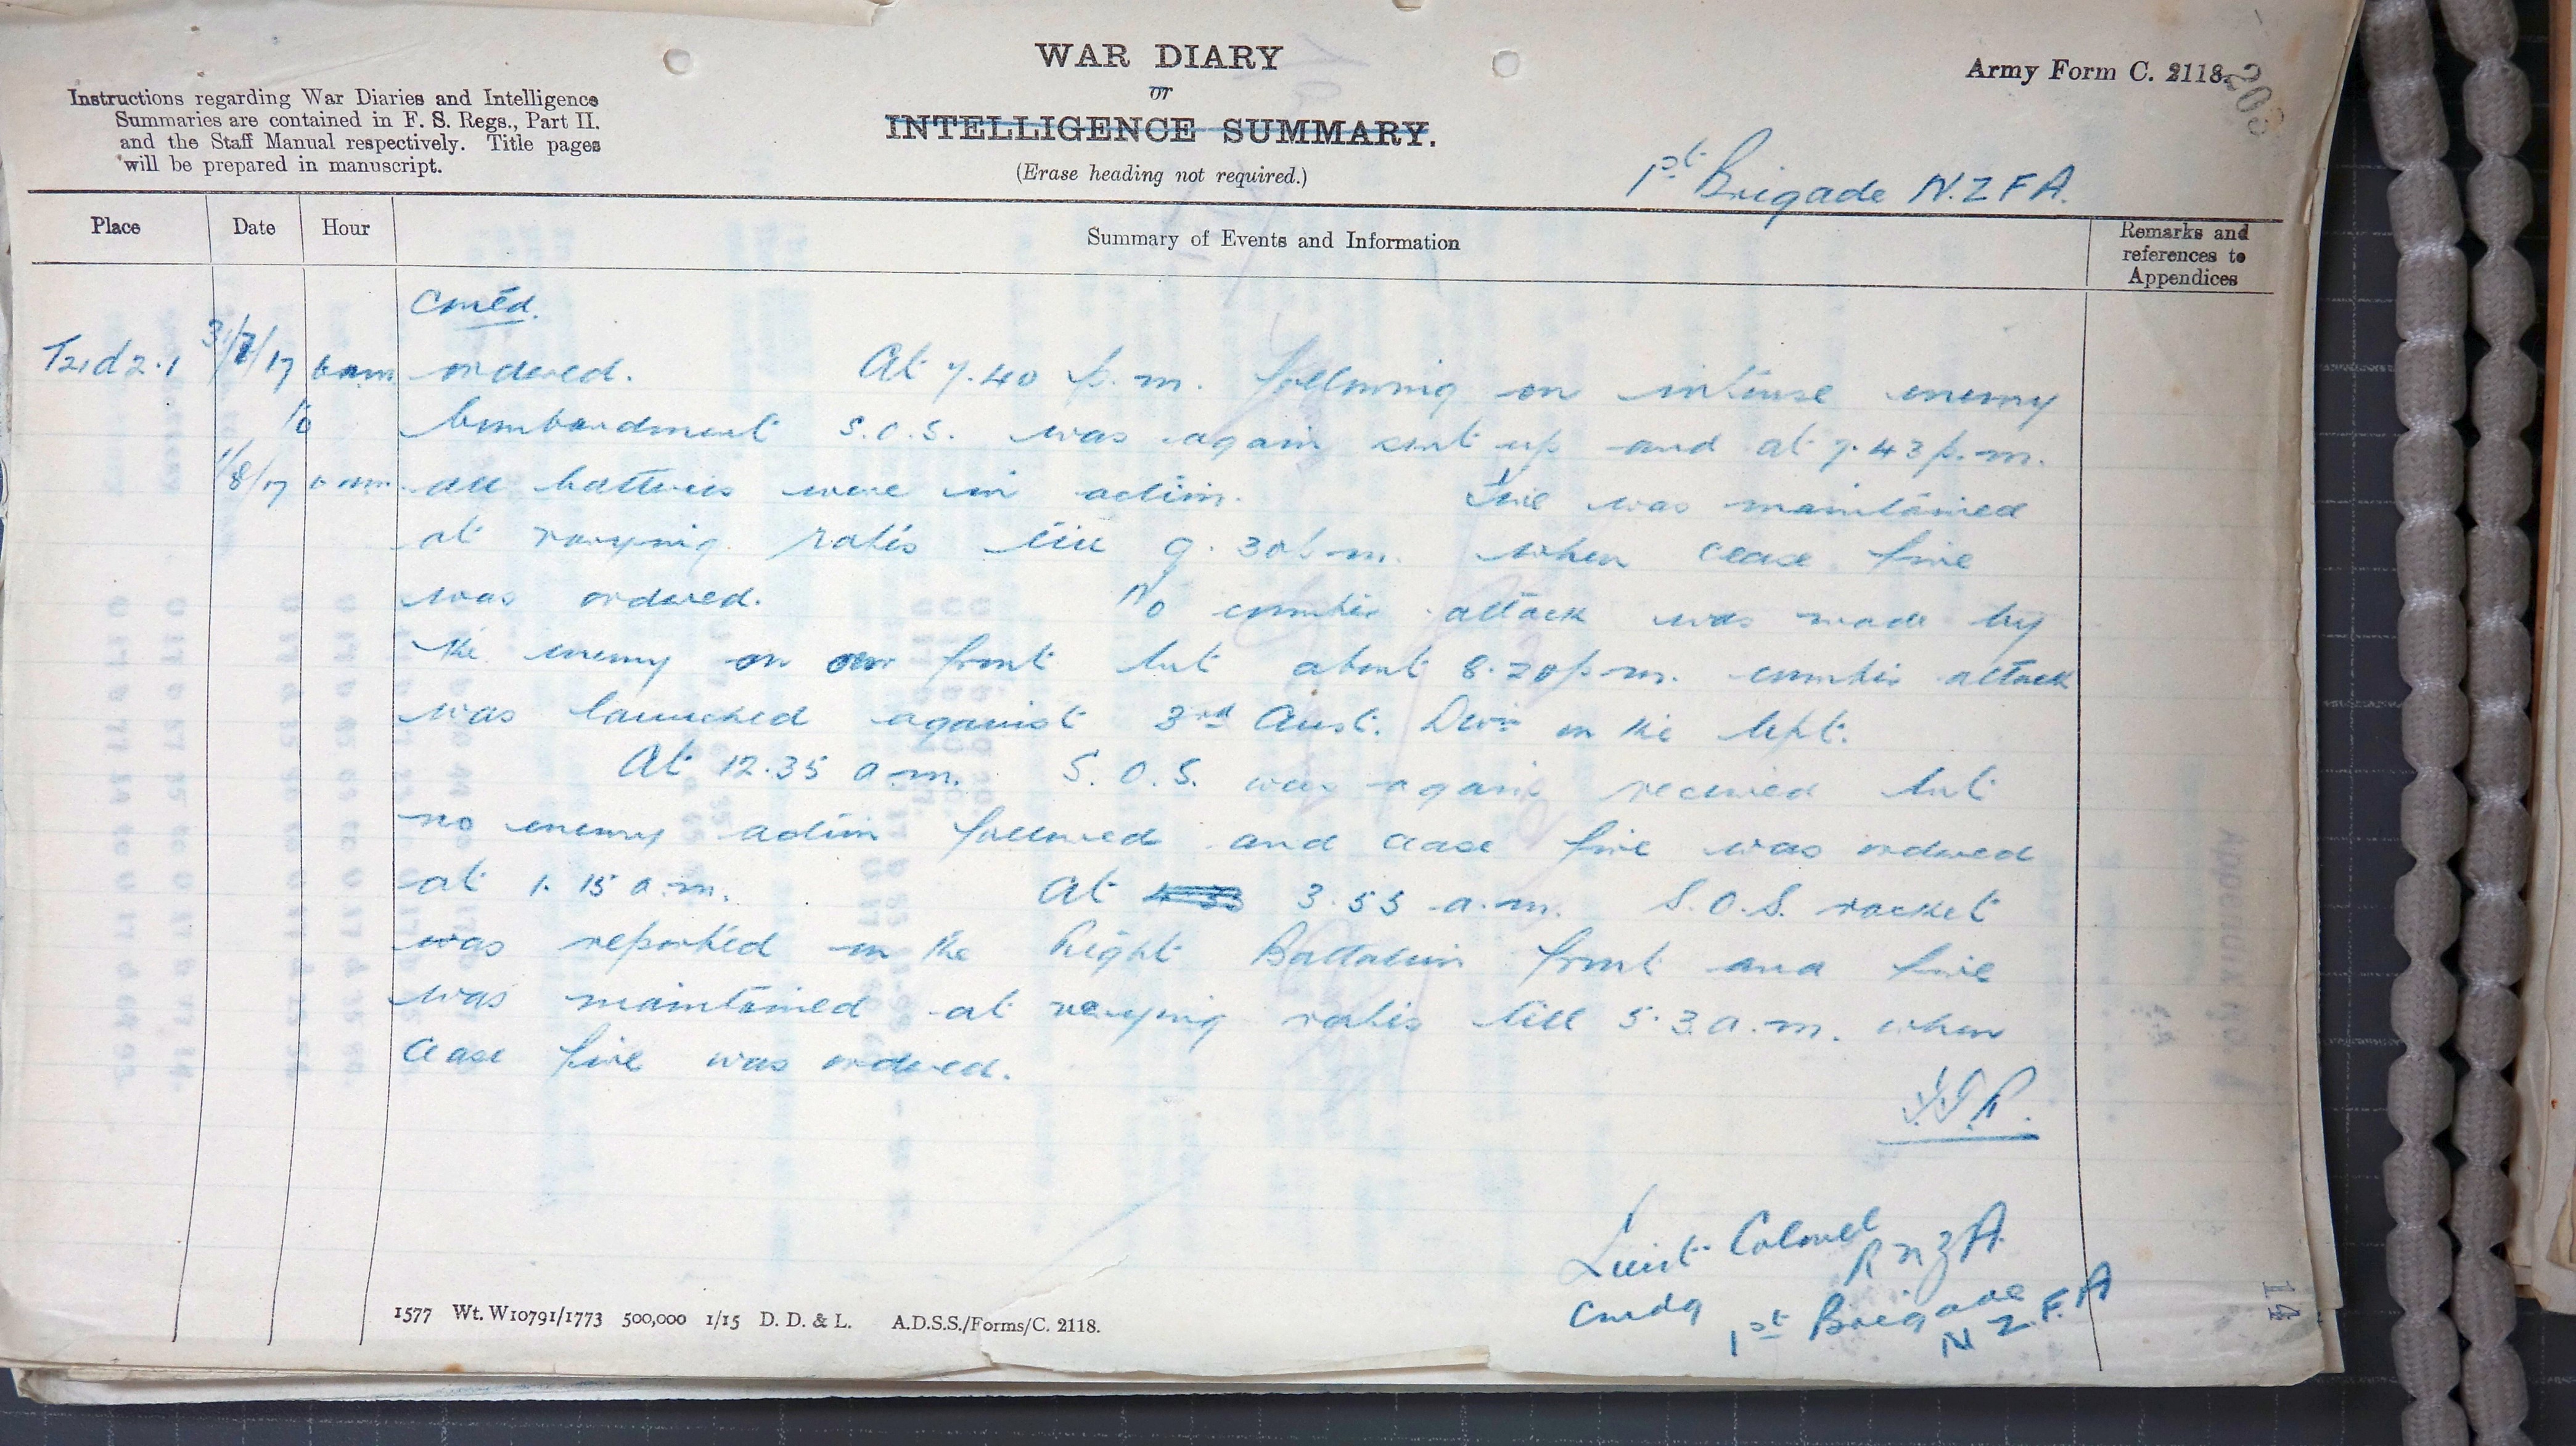 WAR DIARY
or
INTELLIGENCE SUMMARY.
(Erase heading not required.)
Army Form C. 2118.
203
Instructions regarding War Diaries and Intelligence
Summaries are contained in F. S. Regs., Part II.
and the Staff Manual respectively. Title pages
will be prepared in manuscript.
1st Brigade N.Z.F.A.
Place Date Hour Summary of Events and Information Remarks and references to Appendices
Contd.
T21d2.1 31/7/17 6am ordered. At 7.40 p.m. following on intense enemy
to bombardment S.O.S. was again sent up and at 7.43 p.m.
1/8/17 6am all batteries were in action. Fire was maintained
at varying rates till 9.30 p.m. when cease fire
was ordered. No counter attack was made by
the enemy on our front but about 8.20 p.m. counter attack
was launched against 3rd Aust. Divn on the left.
At 12.35 a.m. S.O.S. was again received but
no enemy action followed and cease fire was ordered
at 1.15 a.m. At 3.55 a.m. S.O.S. rocket
was reported on the Right Battalion front and fire
was maintained at varying rates till 5.3 a.m. when
cease fire was ordered.
Lieut-Colonel
RNZA
Cmdg 1st Brigade
N.Z.F.A
1577 Wt. W10791/1773 500,000 1/15 D. D. & L. A.D.S.S./Forms/C. 2118.
14